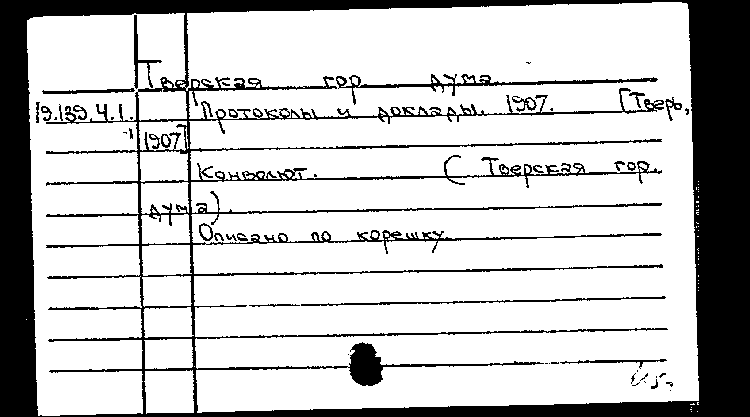 Тверская гор. дума.
19.139.4.1. Протоколы и доклады. 1907. [Тверь,
-1 1907]
Конволют. (Тверская гор.
дума).
Описано по корешку.